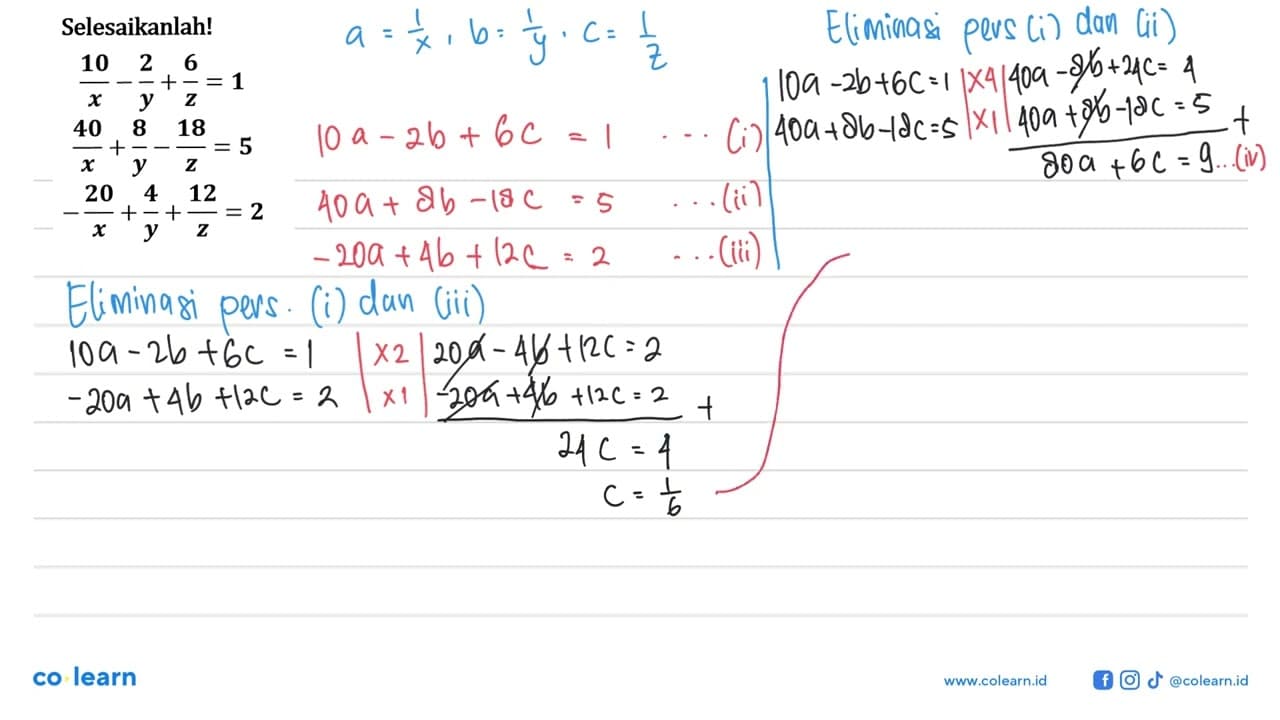 Selesaikanlah!
10/x − 2/y + 6/z = 1
40/x + 8/y − 18/z = 5
−20/x + 4/y + 12/z = 2
a = 1/x, b = 1/y, c = 1/z
10a − 2b + 6c = 1 ... (i)
40a + 8b − 18c = 5 ... (ii)
−20a + 4b + 12c = 2 ... (iii)
Eliminasi pers. (i) dan (iii)
10a − 2b + 6c = 1 | x2 | 20a − 4b + 12c = 2
−20a + 4b + 12c = 2 | x1 | −20a + 4b + 12c = 2 +
24c = 4
c = 1/6
Eliminasi pers (i) dan (ii)
10a − 2b + 6c = 1 | x4 | 40a − 8b + 24c = 4
40a + 8b − 18c = 5 | x1 | 40a + 8b − 18c = 5 +
80a + 6c = 9 ... (iv)
co learn
www.colearn.id
@colearn.id